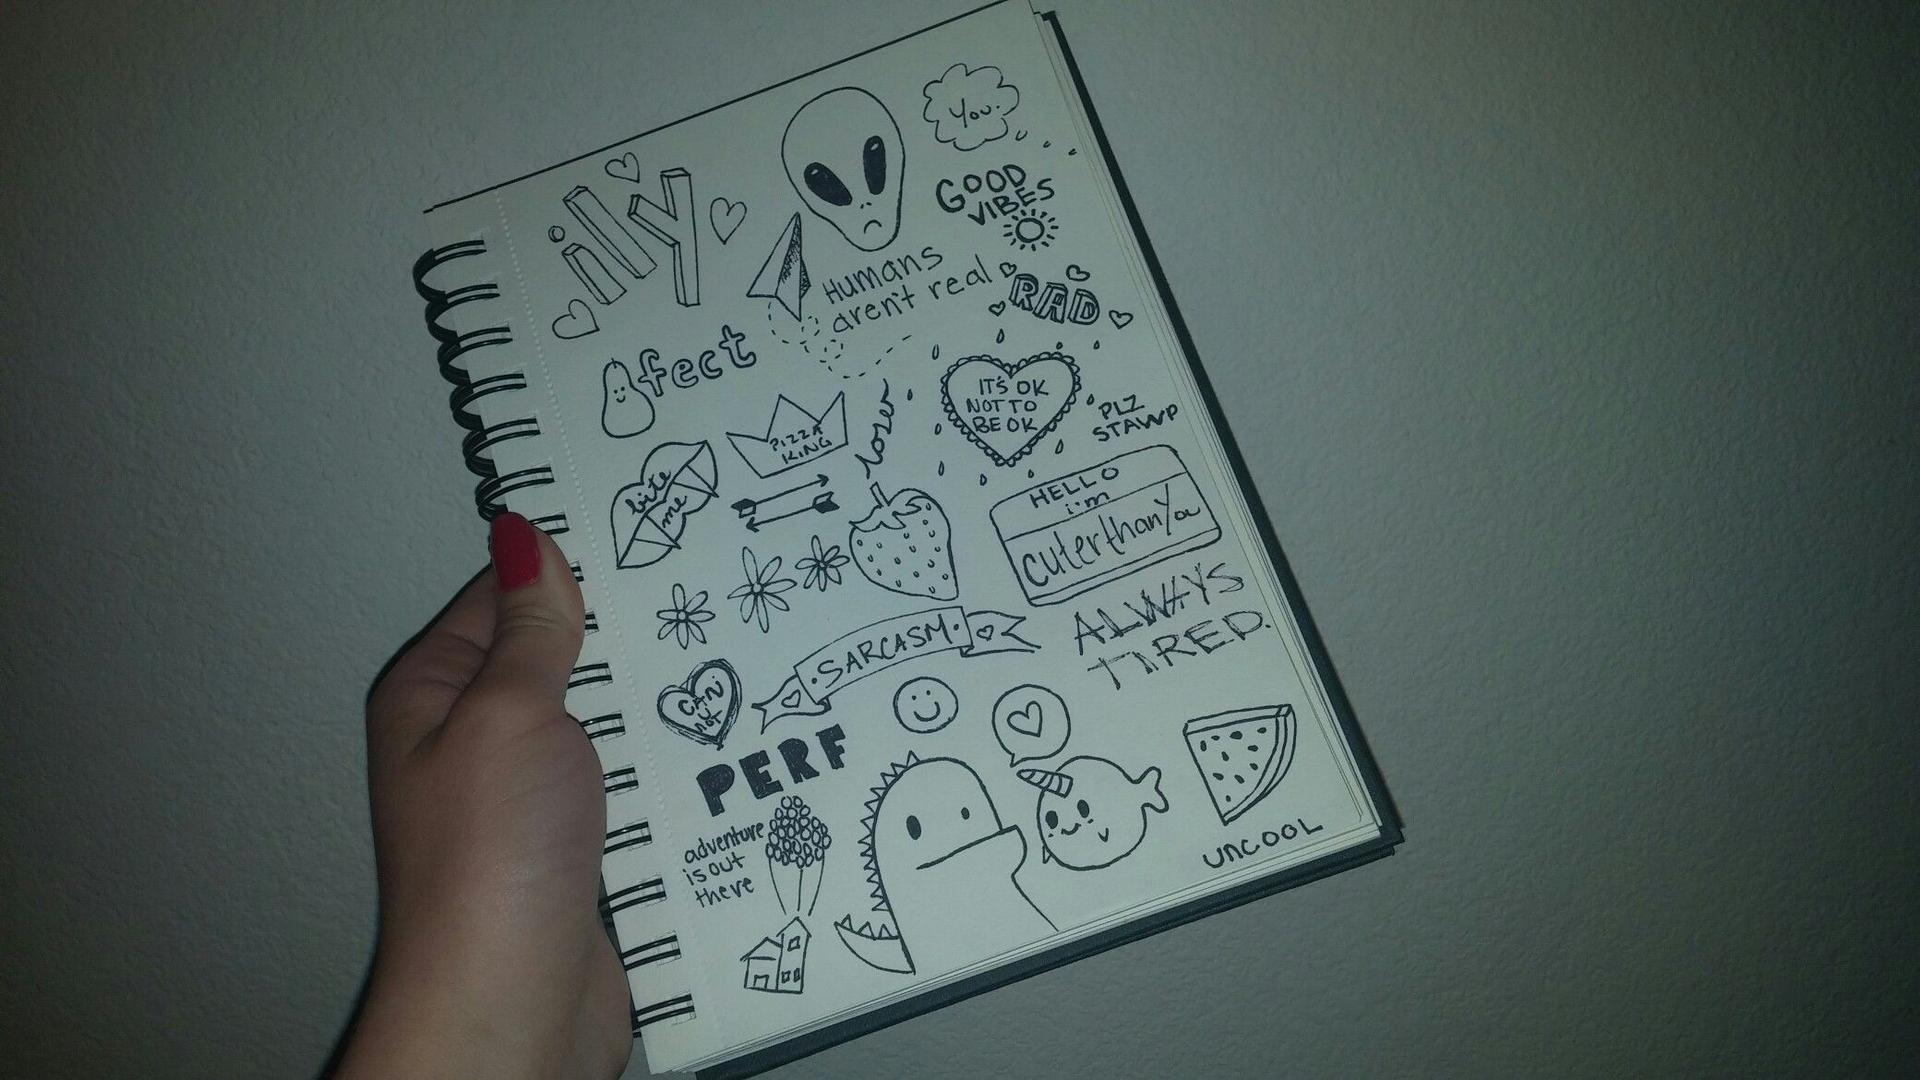 You.
ily
GOOD
VIBES
Humans
aren't real
RAD
fect
PIZZA
KING
loser
IT'S OK
NOT TO
BE OK
PLZ
STAWP
bite
me
HELLO
i'm
cuter than You
ALWAYS
TIRED.
•SARCASM•
CAN
not
PERF
adventure
is out
there
UNCOOL